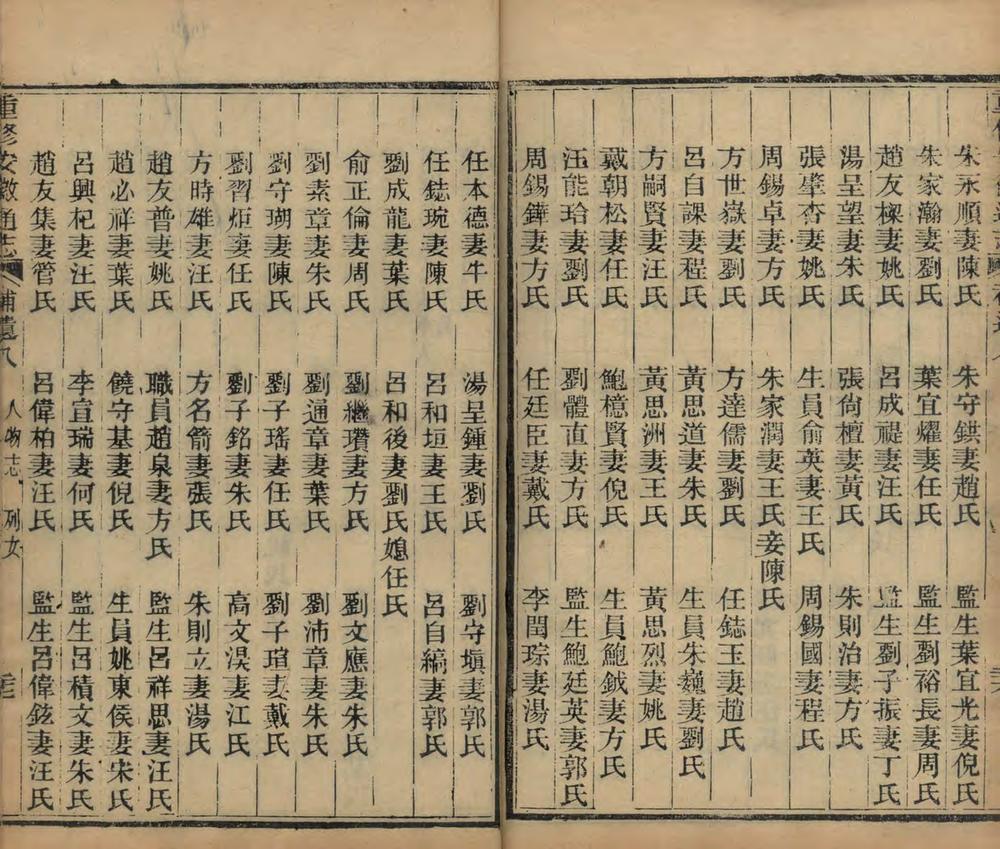 朱永順妻陳氏 朱守鉷妻趙氏 監生葉宜光妻倪氏
朱家瀚妻劉氏 葉宜燿妻任氏 監生劉裕長妻周氏
趙友樑妻姚氏 呂成禔妻汪氏 監生劉子振妻丁氏
湯呈望妻朱氏 張尙檀妻黃氏 朱則治妻方氏
張壆杏妻姚氏 生員俞英妻王氏 周錫國妻程氏
周錫卓妻方氏 朱家潤妻王氏妾陳氏
方世嶽妻劉氏 方達儒妻劉氏 任鋕玉妻趙氏
呂自課妻程氏 黃思道妻朱氏 生員朱巍妻劉氏
方嗣賢妻汪氏 黃思洲妻王氏 黃思烈妻姚氏
戴朝松妻任氏 鮑檍賢妻倪氏 生員鮑鉞妻方氏
汪能珨妻劉氏 劉體直妻方氏 監生鮑廷英妻郭氏
周錫鏵妻方氏 任廷臣妻戴氏 李閏琮妻湯氏
任本德妻牛氏 湯呈鍾妻劉氏 劉守塡妻郭氏
任鋕琬妻陳氏 呂和垣妻王氏 呂自縞妻郭氏
劉成龍妻葉氏 呂和後妻劉氏媳任氏
俞正倫妻周氏 劉繼瓚妻方氏 劉文應妻朱氏
劉素章妻朱氏 劉通章妻葉氏 劉沛章妻朱氏
劉守瑚妻陳氏 劉子瑤妻任氏 劉子瑄妻戴氏
劉習炬妻任氏 劉子銘妻朱氏 高文淏妻江氏
方時雄妻汪氏 方名箭妻張氏 朱則立妻湯氏
趙友普妻姚氏 職員趙泉妻方氏 監生呂祥思妻汪氏
趙必祥妻葉氏 饒守基妻倪氏 生員姚東侯妻宋氏
呂興杞妻汪氏 李宣瑞妻何氏 監生呂積文妻朱氏
趙友集妻管氏 呂偉柏妻汪氏 監生呂偉鉉妻汪氏
重修安徽通志 補遺八 人物志 列女